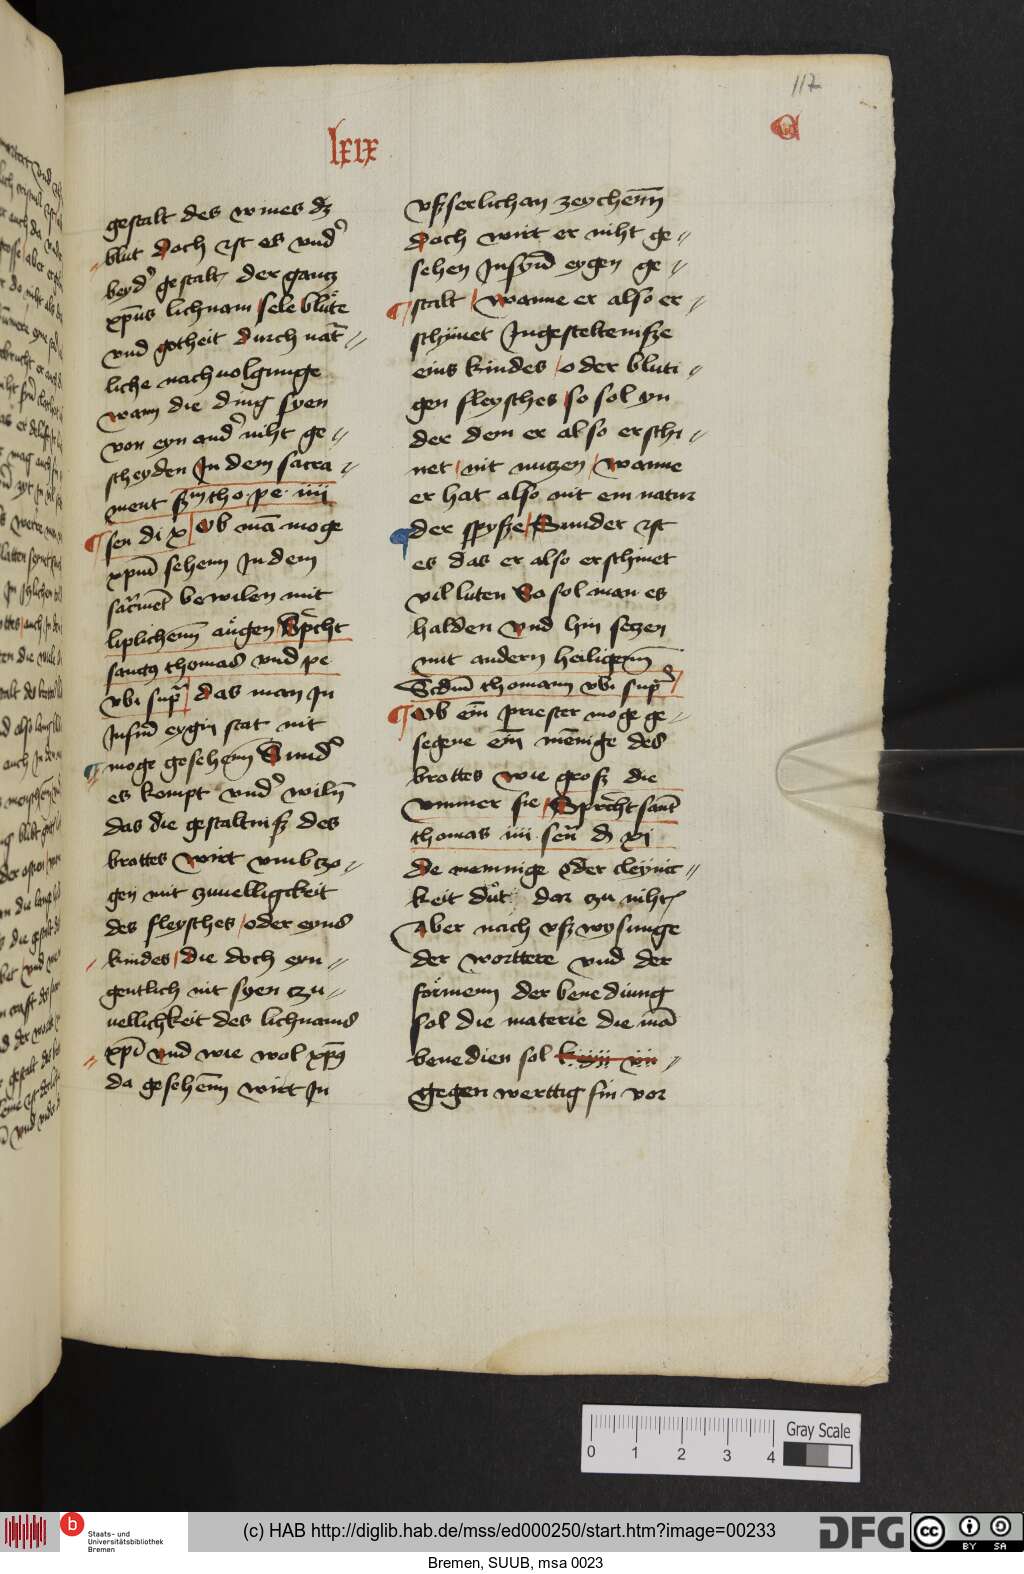 117
lxix
gestalt des wines dz
blut doch ist es vnd'
beyd' gestalt der gantz
xpūs lichnam sele blůte
vnd gotheit durch nāt
liche nachuolgunge
wann die ding syen
von eyn and' niht ge
scheyden In dem sacra
ment tho pe iiii
sen di x Ob mā moge
xpm̄ sehenn In dem
bewilen mit
liplichenn̄ augen Spicht
sanctus thomas vnd pe
vbi sup̄ das man In
eygin stat nit
moge gesehenn̄ Sund'
es kompt vnd' wiln̄
das die gestaltnisz des
brottes wirt vmb czo
gen mit zuuelligckeit
des fleysches oder eyns
kindes die doch eyn
gentlich nit syen czu
uellichkeit des lichnams
xpī vnd wie wol xp̄s
da gesehenn̄ wirt In
vszserlichan zeychenn̄
doch wirt er niht ge
sehen eygen ge
stalt wanne er also er
schinet Ingesteltenisze
eins kindes oder bluti
gen fleysches so sol yn
der dem er also erschi
net nit nutzen wanne
er hat also mit em natur
der spysze Sunder ist
es das er also erschinet
vil luten So sol man es
halden vnd hin setzen
mit andern heiligenn̄
Scdm̄ thomam vbi sup̄
Ob ein̄ priester moge ge
segene ein̄ mēnige des
brottes wie grosz die
vmmer sie Spricht sant
thomas iiii sen̄ d xi
de mennige oder cleynic
keit dut dar czu niht
Aber nach vszwysunge
der worttere vnd der
formenn der benediung
sol die materie die mā
benedien sol
gegen werttig sin vor
0 1 2 3 4
Gray Scale
Staats- und
Universitätsbibliothek
Bremen
(c) HAB http://diglib.hab.de/mss/ed000250/start.htm?image=00233
DFG
cc BY SA
Bremen, SUUB, msa 0023